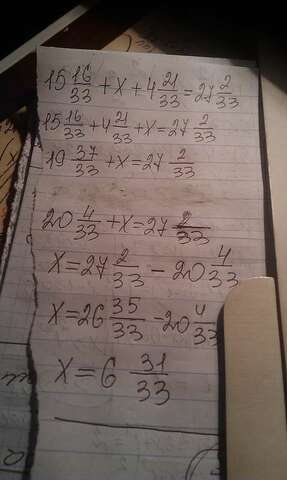 15 16/33 + x + 4 21/33 = 27 2/33
15 16/33 + 4 21/33 + x = 27 2/33
19 37/33 + x = 27 2/33
20 4/33 + x = 27 2/33
x = 27 2/33 - 20 4/33
x = 26 35/33 - 20 4/33
x = 6 31/33